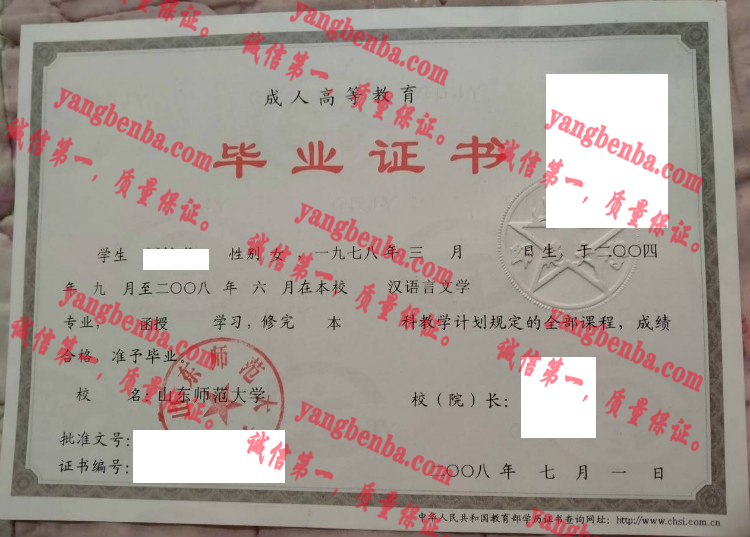 成人高等教育
毕业证书
学生 性别 女 ，一九七八 年 三 月 日生，于二〇〇四
年 九 月至二〇〇八 年 六 月在本校 汉语言文学
专业， 函授 学习，修完 本 科教学计划规定的全部课程，成绩
合格，准予毕业。
校 名：山东师范大学
校（院）长：
批准文号：
证书编号：
二〇〇八 年 七 月 一 日
中华人民共和国教育部学历证书查询网址：http://www.chsi.com.cn
山东师范大
yangbenba.com
诚信第一，质量保证。
yangbenba.com
诚信第一，质量保证。
yangbenba.com
诚信第一，质量保证。
yangbenba.com
诚信第一，质量保证。
yangbenba.com
诚信第一，质量保证。
yangbenba.com
诚信第一，质量保证。
yangbenba.com
诚信第一，质量保证。
yangbenba.com
诚信第一，质量保证。